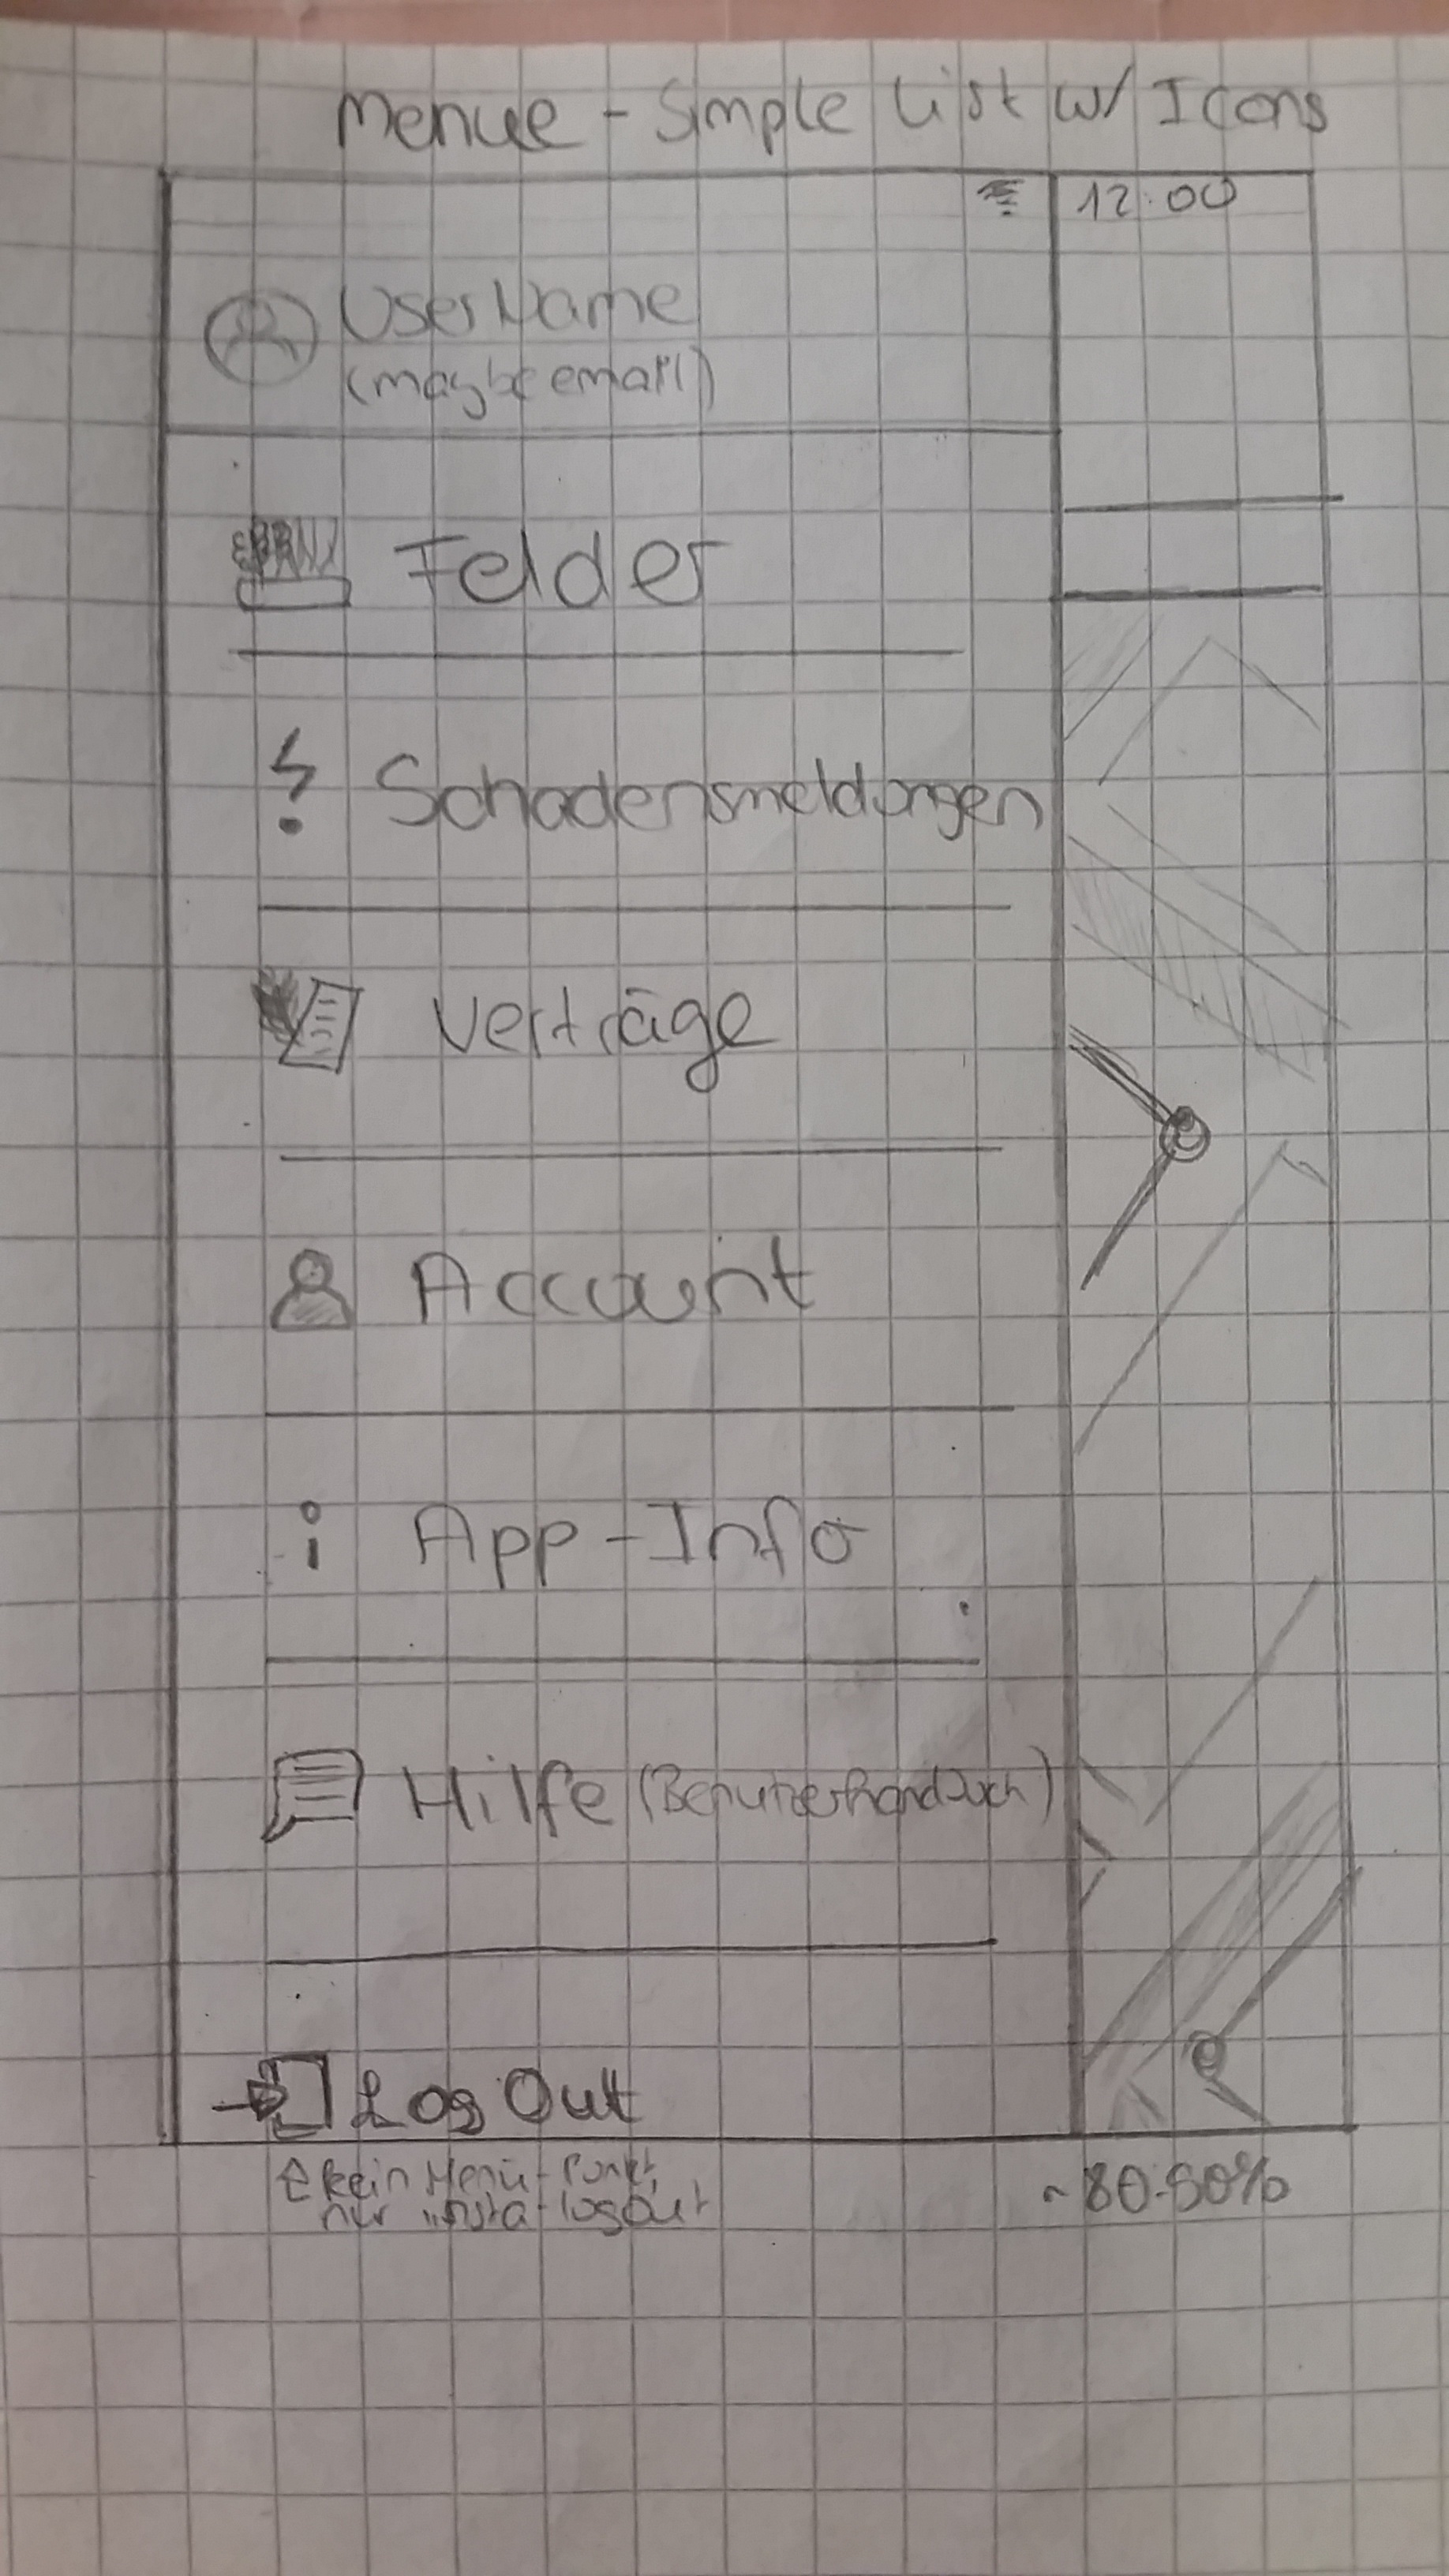 Menue - Simple List w/ Icons
12:00
UserName
(maybe email)
Felder
Schadensmeldungen
Verträge
Account
i App-Info
Hilfe (Benutzerhandbuch)
Log Out
kein Menü-Punkt,
nur insta-logout
~80-90%